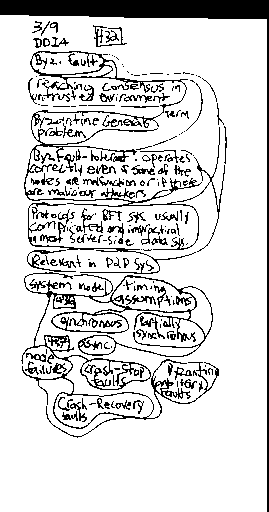 3/9
DDIA
Byz. Fault
reaching consensus in
untrusted environment
term
Byzantine Generals
problem
Byz Fault-tolerant: operates
correctly even if some of the
nodes are malfunction or if there
are malicious attackers
Protocols for BFT sys. usually
complicated and impractical
in most server-side data sys.
Relevant in P2P sys
system model
timing
assumptions
synchronous
Partially
synchronous
async.
node
failures
crash-stop
faults
Byzantine
arbitrary
faults
Crash-Recovery
faults